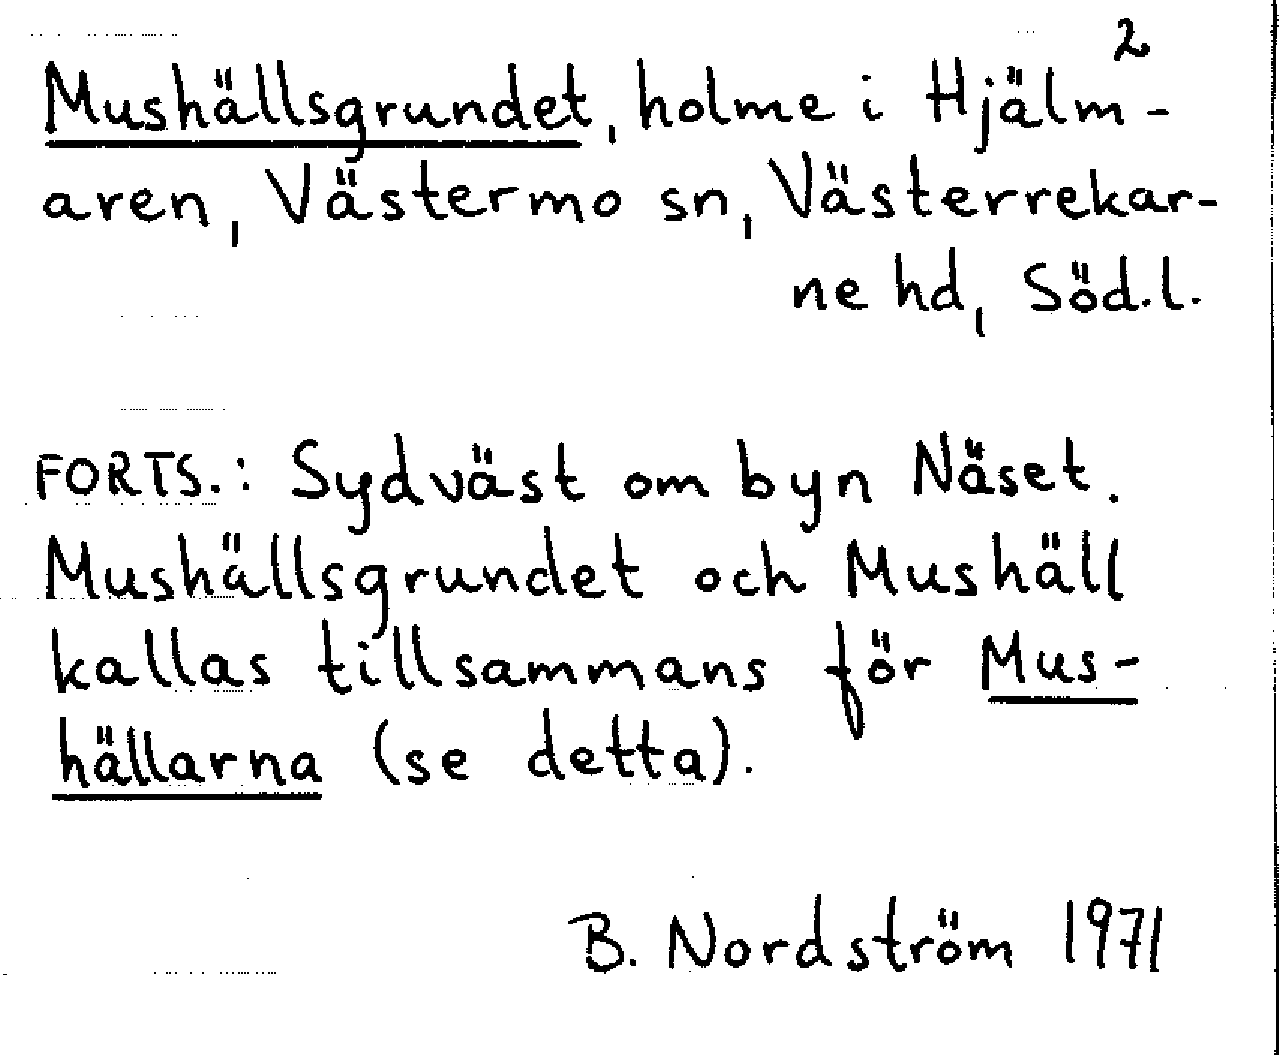 2
Mushällsgrundet, holme i Hjälm-
aren, Västermo sn, Västerrekar-
ne hd, Söd.l.
FORTS.: Sydväst om byn Näset.
Mushällsgrundet och Mushäll
kallas tillsammans för Mus-
hällarna (se detta).
B. Nordström 1971